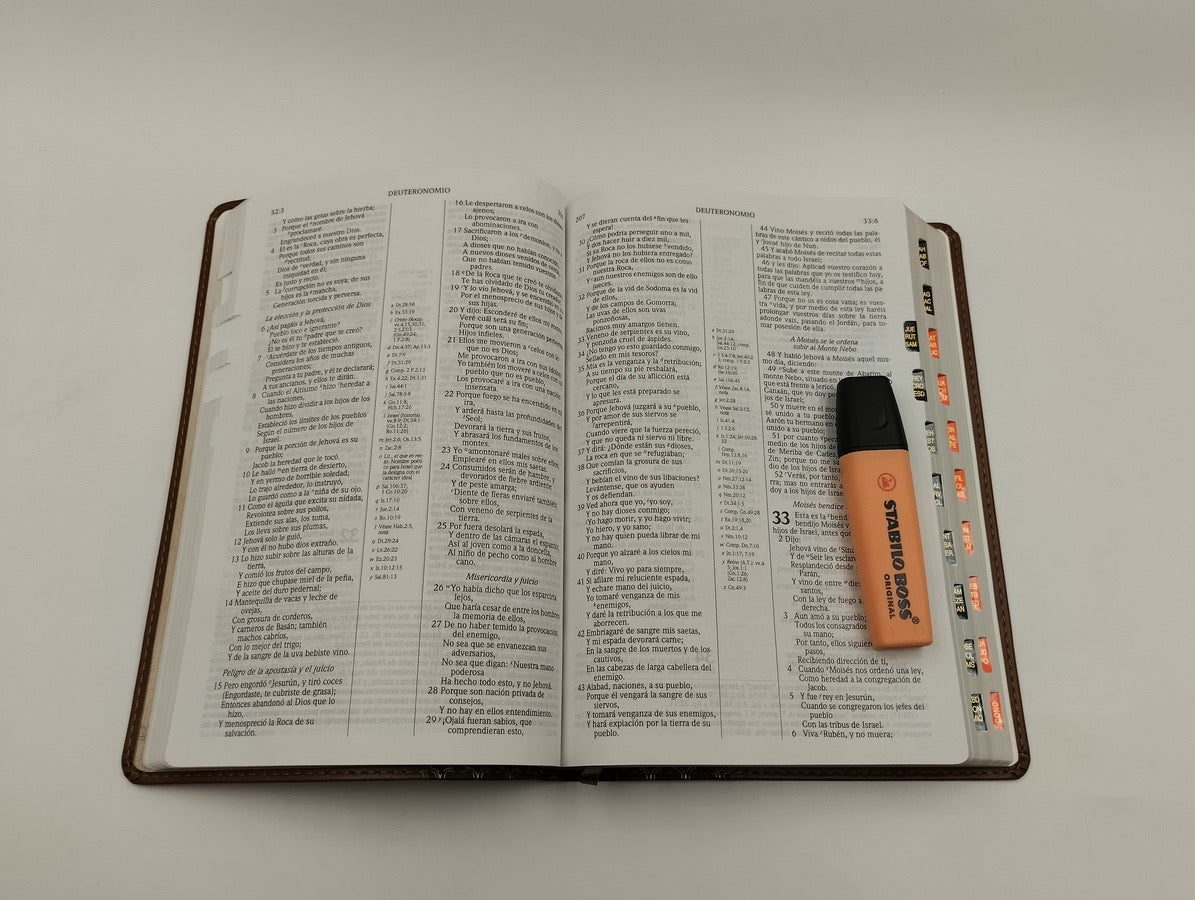 DEUTERONOMIO
32:3
Y como las gotas sobre la hierba;
3 Porque el nombre de Jehová
proclamaré.
Engrandeced a nuestro Dios.
4 Él es la Roca, cuya obra es perfecta,
Porque todos sus caminos son
rectitud;
Dios de verdad, y sin ninguna
iniquidad en él;
Es justo y recto.
5 La corrupción no es suya; de sus
hijos es la mancha,
Generación torcida y perversa.
La elección y la protección de Dios
6 ¿Así pagáis a Jehová,
Pueblo loco e ignorante?
¿No es él tu padre que te creó?
Él te hizo y te estableció.
7 Acuérdate de los tiempos antiguos,
Considera los años de muchas
generaciones;
Pregunta a tu padre, y él te declarará;
A tus ancianos, y ellos te dirán.
8 Cuando el Altísimo hizo heredar a
las naciones,
Cuando hizo dividir a los hijos de los
hombres,
Estableció los límites de los pueblos
Según el número de los hijos de
Israel.
9 Porque la porción de Jehová es su
pueblo;
Jacob la heredad que le tocó.
10 Le halló en tierra de desierto,
Y en yermo de horrible soledad;
Lo trajo alrededor, lo instruyó,
Lo guardó como a la niña de su ojo.
11 Como el águila que excita su nidada,
Revolotea sobre sus pollos,
Extiende sus alas, los toma,
Los lleva sobre sus plumas,
12 Jehová solo le guió,
Y con él no hubo dios extraño.
13 Lo hizo subir sobre las alturas de la
tierra,
Y comió los frutos del campo,
E hizo que chupase miel de la peña,
Y aceite del duro pedernal;
14 Mantequilla de vacas y leche de
ovejas,
Con grosura de corderos,
Y carneros de Basán; también
machos cabríos,
Con lo mejor del trigo;
Y de la sangre de la uva bebiste vino.
Peligro de la apostasía y el juicio
15 Pero engordó Jesurún, y tiró coces
(Engordaste, te cubriste de grasa);
Entonces abandonó al Dios que lo
hizo,
Y menospreció la Roca de su
salvación.
16 Le despertaron a celos con los
ajenos;
Lo provocaron a ira con
abominaciones.
17 Sacrificaron a los demonios, y no
Dios;
A dioses que no habían conocido,
A nuevos dioses venidos de cerca,
Que no habían temido vuestros
padres.
18 De la Roca que te creó te olvidaste;
Te has olvidado de Dios tu creador.
19 Y lo vio Jehová, y se encendió en ira
Por el menosprecio de sus hijos y de
sus hijas.
20 Y dijo: Esconderé de ellos mi rostro,
Veré cuál será su fin;
Porque son una generación perversa,
Hijos infieles.
21 Ellos me movieron a celos con lo
que no es Dios;
Me provocaron a ira con sus ídolos;
Yo también los moveré a celos con un
pueblo que no es pueblo,
Los provocaré a ira con una nación
insensata.
22 Porque fuego se ha encendido en mi
ira,
Y arderá hasta las profundidades del
Seol;
Devorará la tierra y sus frutos,
Y abrasará los fundamentos de los
montes.
23 Yo amontonaré males sobre ellos;
Emplearé en ellos mis saetas.
24 Consumidos serán de hambre, y
devorados de fiebre ardiente
Y de peste amarga;
Diente de fieras enviaré también
sobre ellos,
Con veneno de serpientes de la
tierra.
25 Por fuera desolará la espada,
Y dentro de las cámaras el espanto;
Así al joven como a la doncella,
Al niño de pecho como al hombre
cano.
Misericordia y juicio
26 Yo había dicho que los esparciría
lejos,
Que haría cesar de entre los hombres
la memoria de ellos,
27 De no haber temido la provocación
del enemigo,
No sea que se envanezcan sus
adversarios,
No sea que digan: Nuestra mano
poderosa
Ha hecho todo esto, y no Jehová.
28 Porque son nación privada de
consejos,
Y no hay en ellos entendimiento.
29 ¡Ojalá fueran sabios, que
comprendieran esto,
207
DEUTERONOMIO
33:6
Y se dieran cuenta del fin que les
espera!
30 ¿Cómo podría perseguir uno a mil,
Y dos hacer huir a diez mil,
Si su Roca no los hubiese vendido,
Y Jehová no los hubiera entregado?
31 Porque la roca de ellos no es como
nuestra Roca,
Y aun nuestros enemigos son de ello
jueces.
32 Porque de la vid de Sodoma es la vid
de ellos,
Y de los campos de Gomorra;
Las uvas de ellos son uvas
ponzoñosas,
Racimos muy amargos tienen.
33 Veneno de serpientes es su vino,
Y ponzoña cruel de áspides.
34 ¿No tengo yo esto guardado conmigo,
Sellado en mis tesoros?
35 Mía es la venganza y la retribución;
A su tiempo su pie resbalará,
Porque el día de su aflicción está
cercano,
Y lo que les está preparado se
apresura.
36 Porque Jehová juzgará a su pueblo,
Y por amor de sus siervos se
arrepentirá,
Cuando viere que la fuerza pereció,
Y que no queda ni siervo ni libre.
37 Y dirá: ¿Dónde están sus dioses,
La roca en que se refugiaban;
38 Que comían la grosura de sus
sacrificios,
Y bebían el vino de sus libaciones?
Levántense, que os ayuden
Y os defiendan.
39 Ved ahora que yo, yo soy,
Y no hay dioses conmigo;
Yo hago morir, y yo hago vivir;
Yo hiero, y yo sano;
Y no hay quien pueda librar de mi
mano.
40 Porque yo alzaré a los cielos mi
mano,
Y diré: Vivo yo para siempre,
41 Si afilare mi reluciente espada,
Y echare mano del juicio,
Yo tomaré venganza de mis
enemigos,
Y daré la retribución a los que me
aborrecen.
42 Embriagaré de sangre mis saetas,
Y mi espada devorará carne;
En la sangre de los muertos y de los
cautivos,
En las cabezas de larga cabellera del
enemigo.
43 Alabad, naciones, a su pueblo,
Porque él vengará la sangre de sus
siervos,
Y tomará venganza de sus enemigos,
Y hará expiación por la tierra de su
pueblo.
44 Vino Moisés y recitó todas las pala-
bras de este cántico a oídos del pueblo, él
y Josué hijo de Nun.
45 Y acabó Moisés de recitar todas estas
palabras a todo Israel;
46 y les dijo: Aplicad vuestro corazón a
todas las palabras que yo os testifico hoy,
para que las mandéis a vuestros hijos, a
fin de que cuiden de cumplir todas las pa-
labras de esta ley.
47 Porque no os es cosa vana; es vues-
tra vida, y por medio de esta ley haréis
prolongar vuestros días sobre la tierra
adonde vais, pasando el Jordán, para to-
mar posesión de ella.
A Moisés se le ordena
subir al Monte Nebo
48 Y habló Jehová a Moisés aquel mis-
mo día, diciendo:
49 Sube a este monte de Abarim, al
monte Nebo, situado en
que está frente a Jericó,
Canaán, que yo doy por
jos de Israel;
50 y muere en el mon
sé unido a tu pueblo,
Aarón tu hermano en
unido a su pueblo;
51 por cuanto
medio de los hijos de I
de Meriba de Cades,
Zin; porque no me sa
dio de los hijos de Isra
52 Verás, por tanto,
rra; mas no entrarás a
doy a los hijos de Isra
Moisés bendice
33 Esta es la bend
bendijo Moisés v
hijos de Israel, antes que
2 Dijo:
Jehová vino de Sina
Y de Seir les esclare
Resplandeció desde
Parán,
Y vino de entre die
santos,
Con la ley de fuego a
derecha.
3 Aun amó a su pueblo;
Todos los consagrados
su mano;
Por tanto, ellos siguiero
pasos,
Recibiendo dirección de ti,
4 Cuando Moisés nos ordenó una ley,
Como heredad a la congregación de
Jacob.
5 Y fue rey en Jesurún,
Cuando se congregaron los jefes del
pueblo
Con las tribus de Israel.
6 Viva Rubén, y no muera;
STABILO BOSS®
ORIGINAL